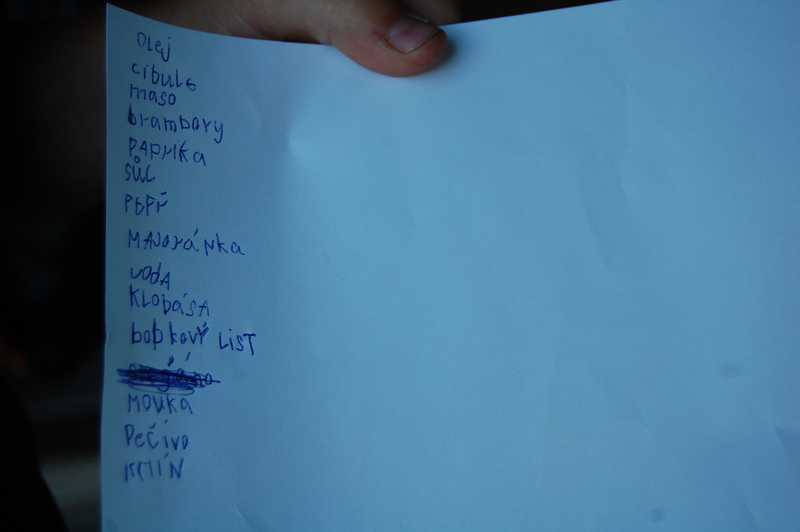 olej
cibule
maso
brambory
PAPrika
SůL
PEPř
MAJoráNka
vodA
KLobásA
bobkový LiST
MOUKA
Pečivo
KMÍN